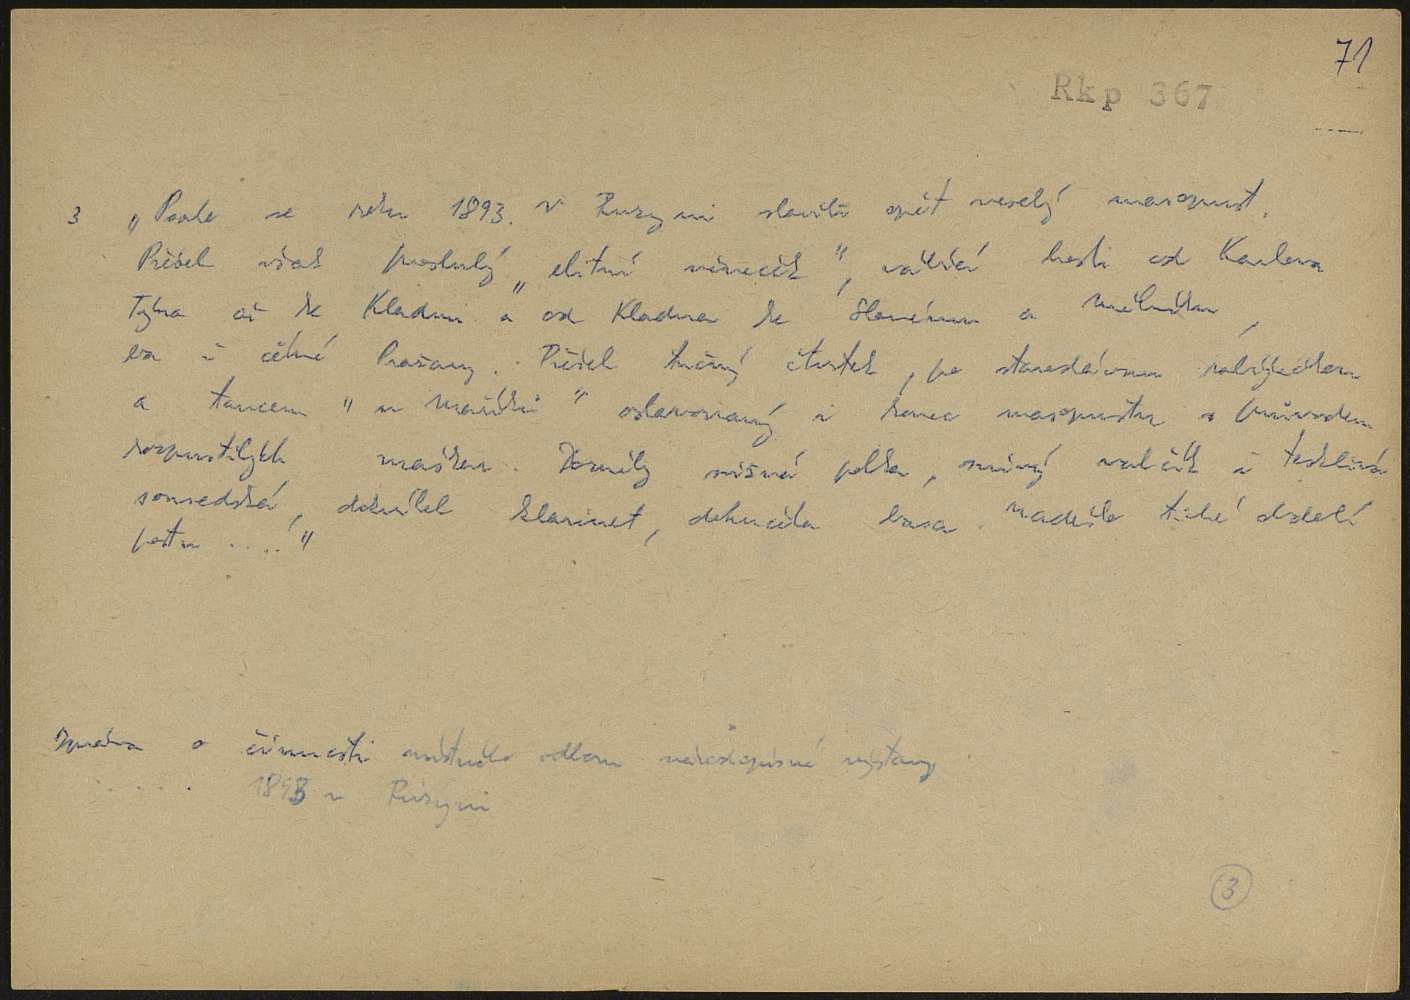 71
Rkp 367
3 „Podle se roku 1893. v Ruzyni slavilo opět veselý masopust.
Přišel však proslulý „elitní věneček",
hosti od Karlova
Týna až ke Kladnu a od Kladna ke Slanému a Mělníku,
ba i četné Pražany. Přišel tučný čtvrtek, po starodávnu
a tancem "u Maříků" oslavovaný i konec masopustu s průvodem
rozpustilých maškar. Dozněly polka, valčík i teskливá
sousedská, dokvílel klarinet, dohučela basa. Nadešlo tiché období
postu ....."
Zpráva o činnosti místního odboru národopisné výstavy
..... 1893 v Ruzyni
3